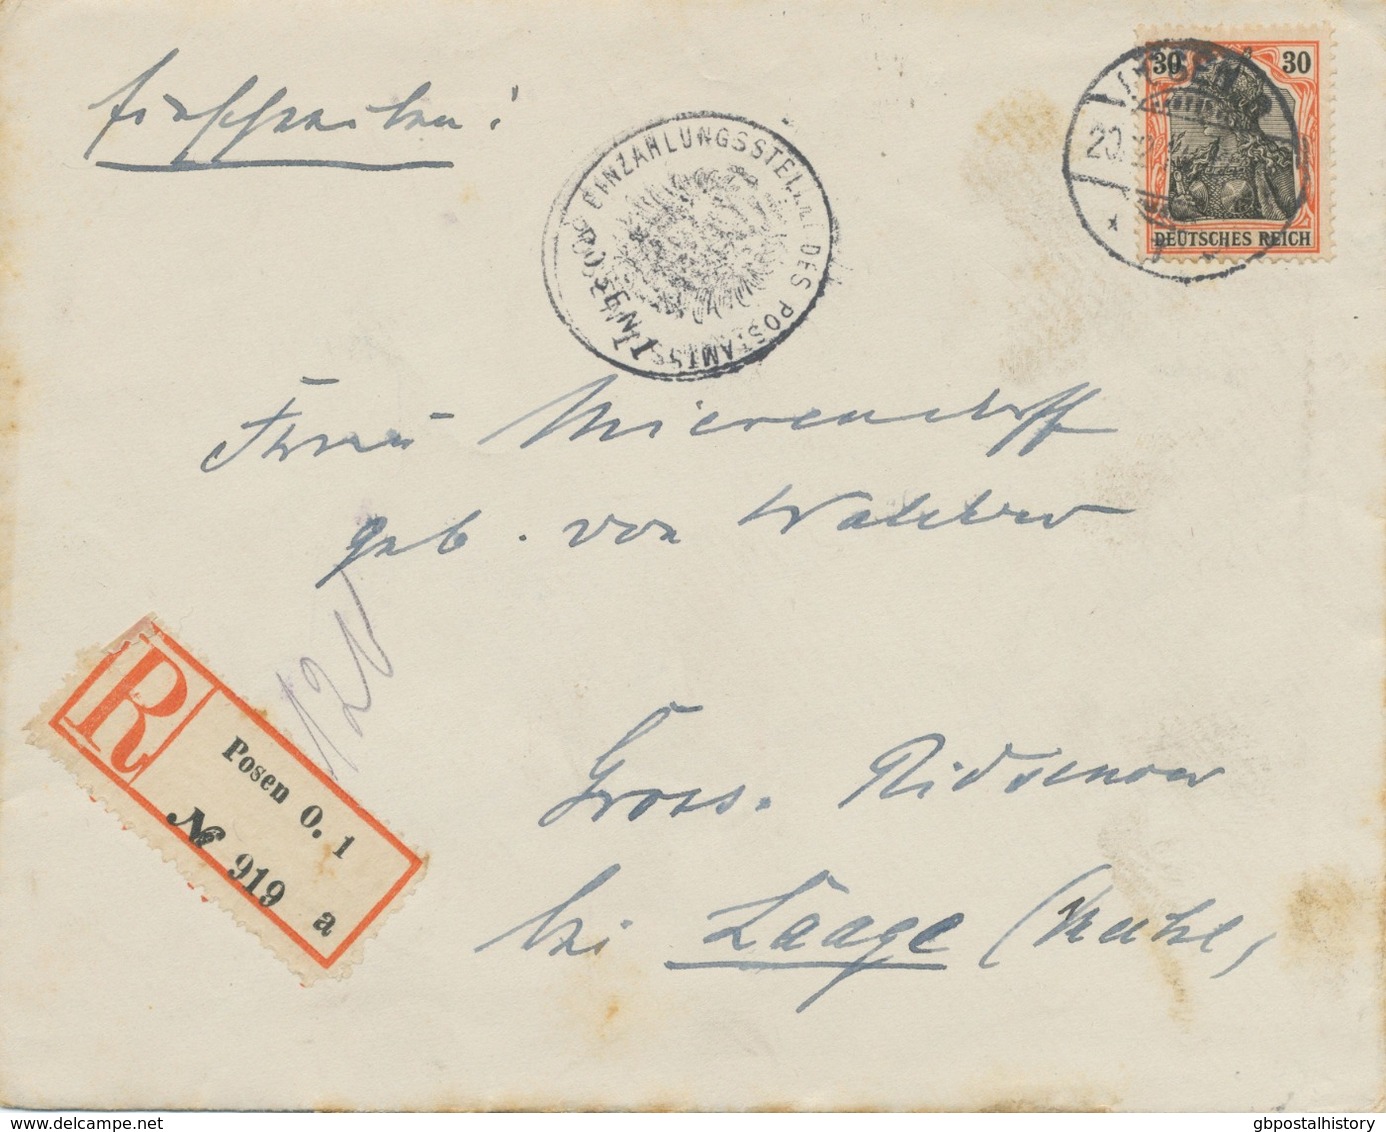 Einschreiben!
30 30
DEUTSCHES REICH
POSEN
EINZAHLUNGSSTELLE DES POSTAMTS
POSEN 1
Frau Mierendorff
geb. von
Gross-Ridsenow
bei Laage (Meckl)
120
R
Posen O. 1
№ 919
a
www.delcampe.net
gbpostalhistory